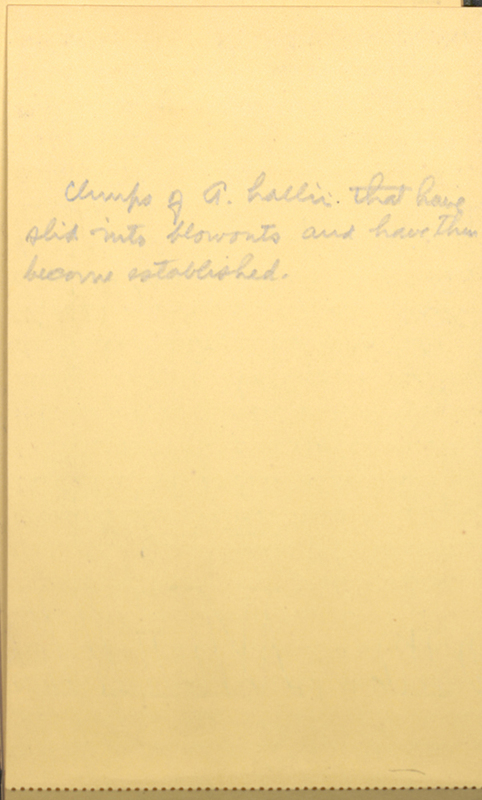 Clumps of A. hallii. that have
slid into blowouts and have then
become established.